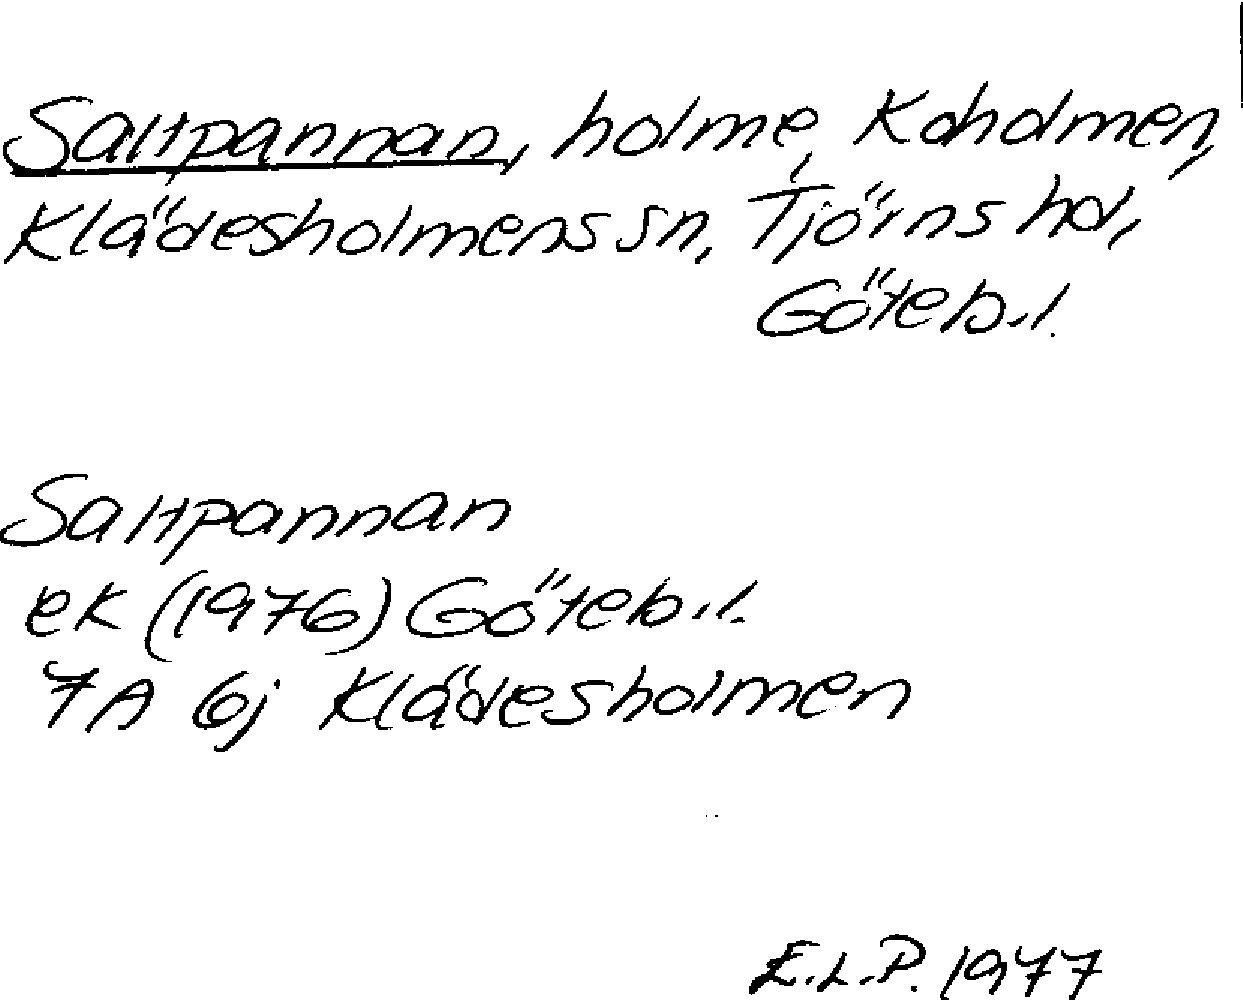 Saltpannan, holme, Koholmen,
Klädesholmens sn, Tjörns hd,
Göteb.l.
Saltpannan
ek (1976) Göteb.l.
7A 6j Klädesholmen
E.L.P. 1977